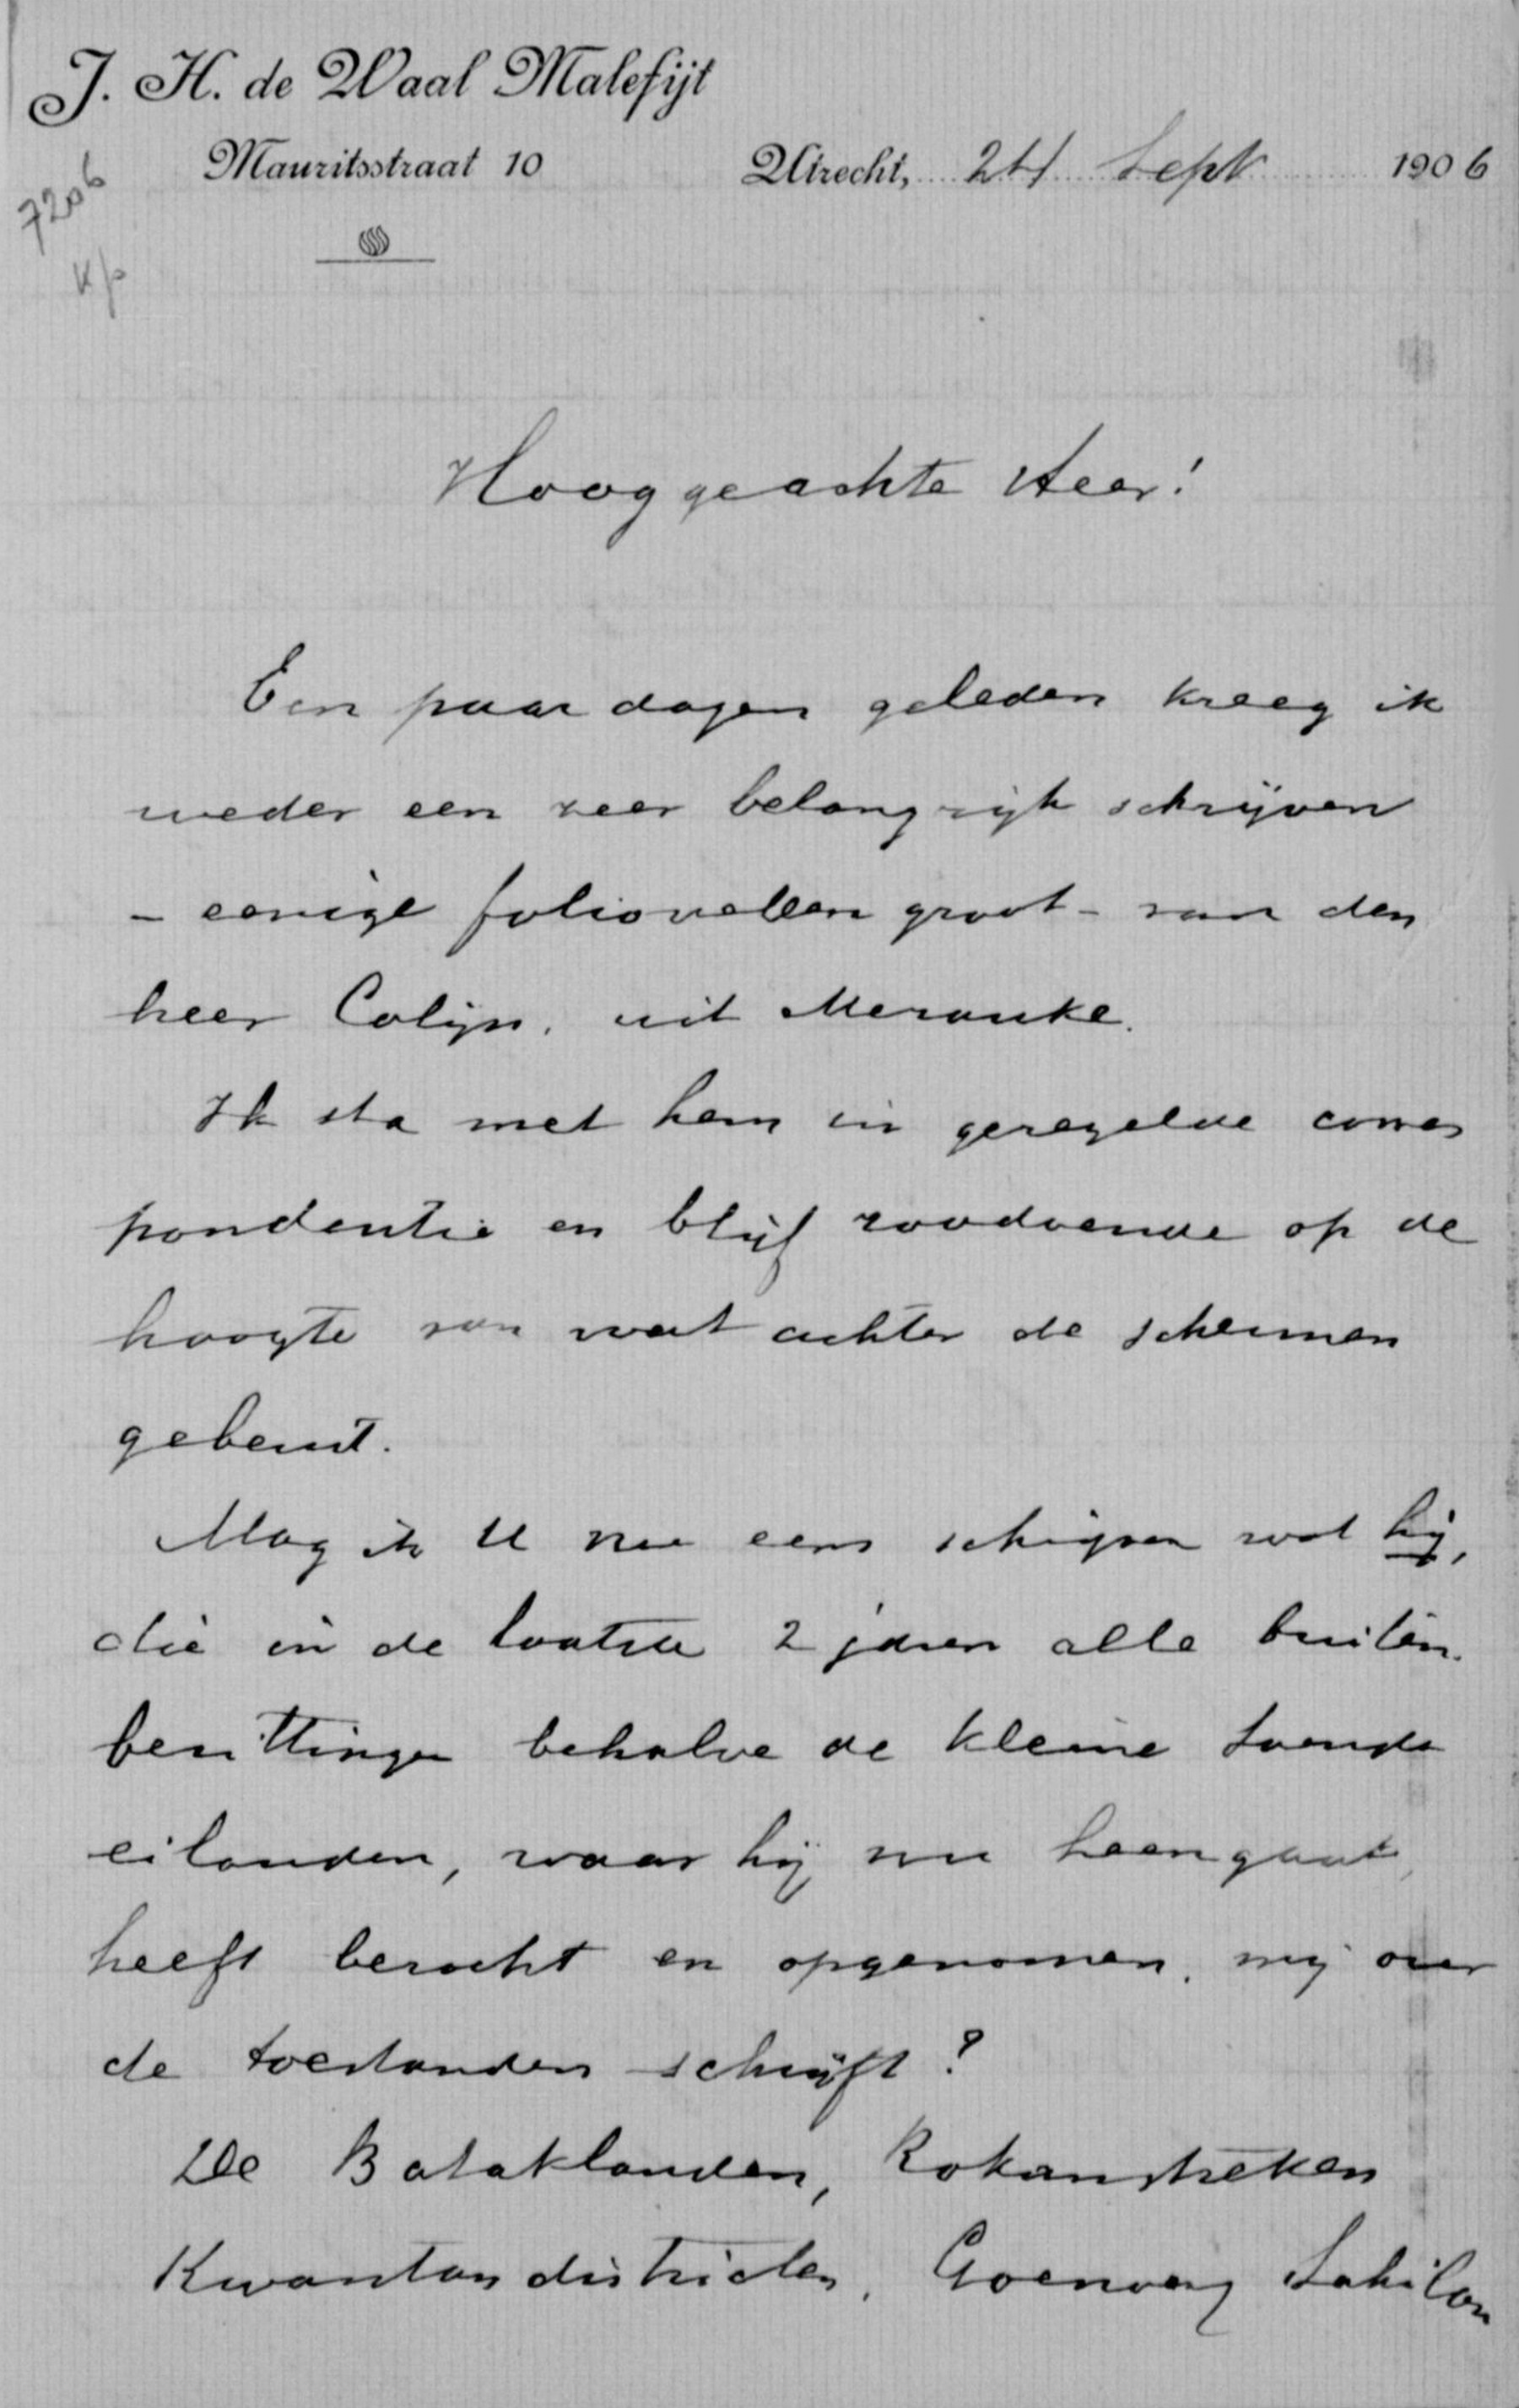 J. H. de Waal Malefijt
Mauritsstraat 10
Utrecht, 24 Sept 1906
7206
Kp
Hooggeachte Heer!
Een paar dagen geleden kreeg ik
weder een zeer belangrijk schrijven
- eenige foliovellen groot - van den
heer Colijn, uit Merauke.
Ik sta met hem in geregelde corres
pondentie en blijf zoodoende op de
hoogte van wat achter de schermen
gebeurt.
Mag ik U nu eens schrijven wat hij,
die in de laatste 2 jaren alle buiten-
bezittingen behalve de kleine Soenda
eilanden, waar hij nu heengaat,
heeft bezocht en opgenomen, mij over
de toestanden schrijft?
De Bataklanden, Rokanstreken
Kwantan districten, Goenoeng Sahilan